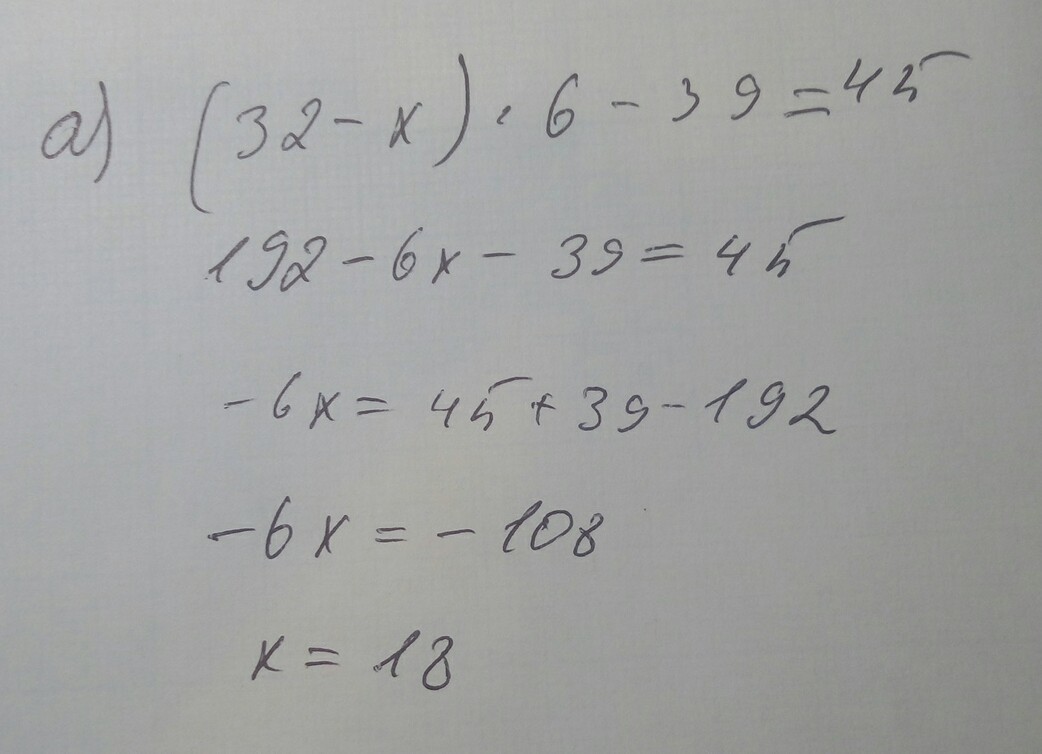 а) (32 - x) · 6 - 39 = 45
192 - 6x - 39 = 45
-6x = 45 + 39 - 192
-6x = - 108
x = 18